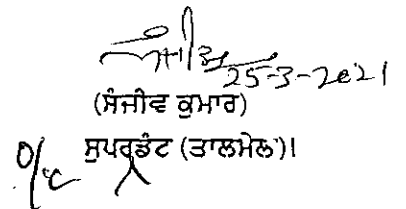 25-3-2021
(ਸੰਜੀਵ ਕੁਮਾਰ)
ਸੁਪਰਡੰਟ (ਤਾਲਮੇਲ)।
O/c